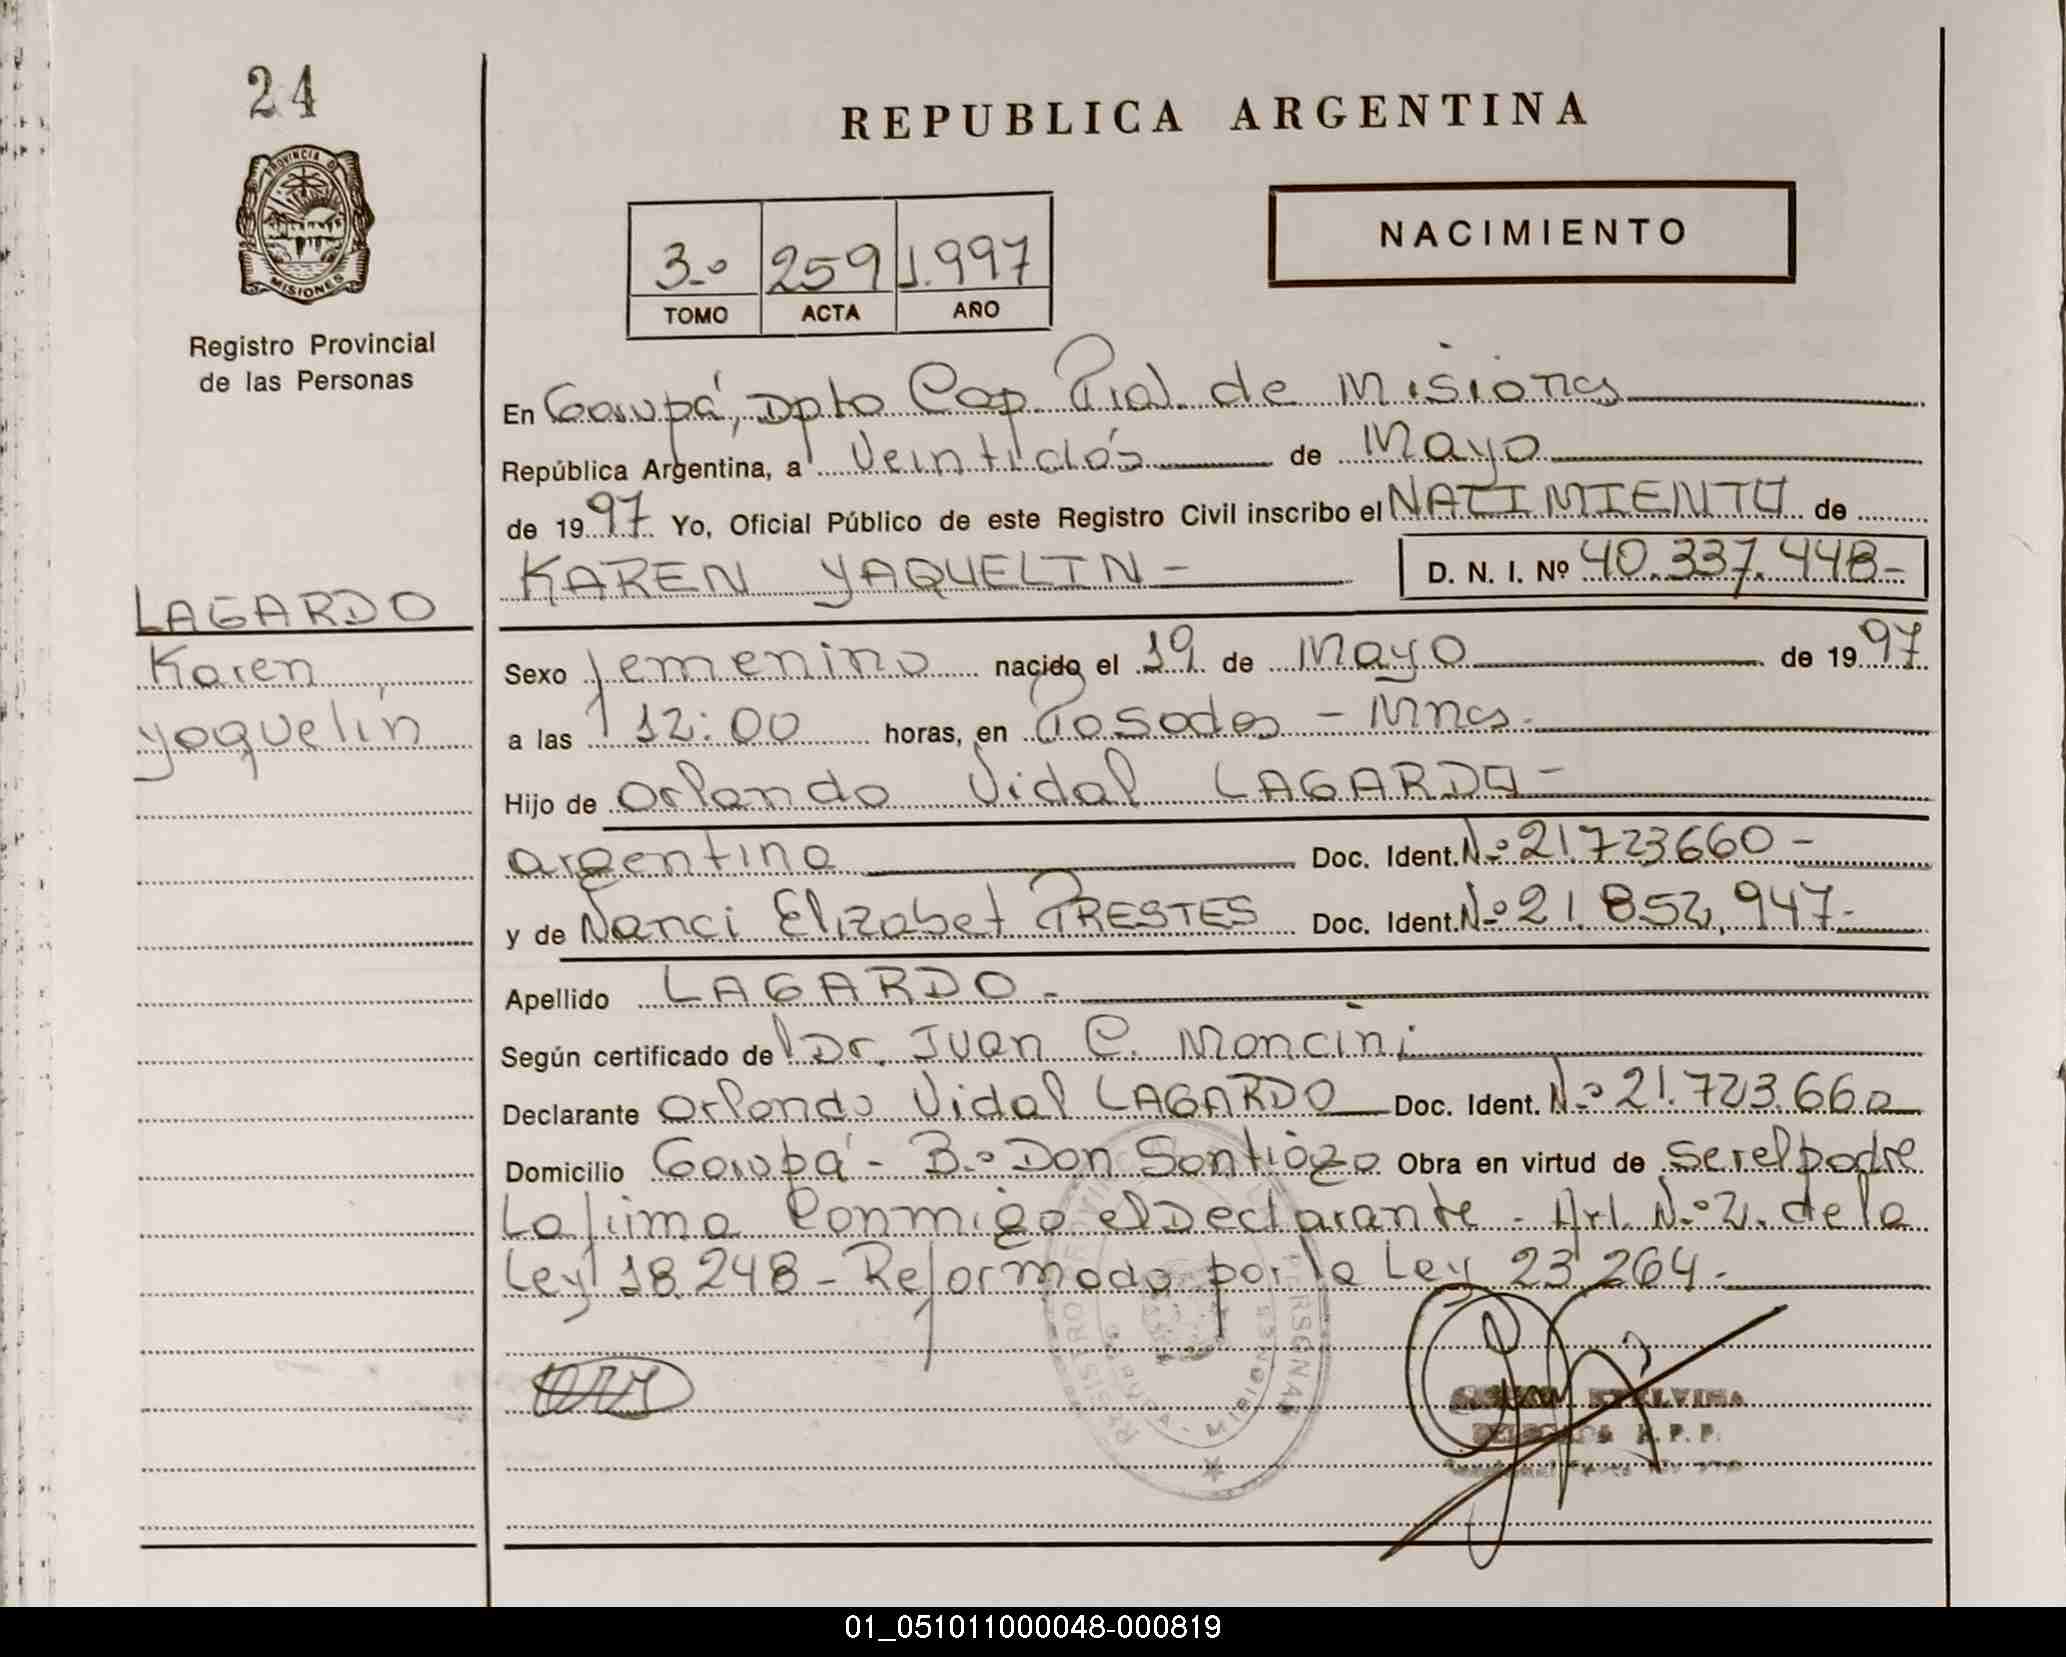 24
PROVINCIA DE
MISIONES
Registro Provincial
de las Personas
LAGARDO
Karen
yaquelin
REPUBLICA ARGENTINA
NACIMIENTO
3º 259 1.997
TOMO ACTA AÑO
En Garupá, Dpto Cap. Pial. de Misiones
República Argentina, a Veintidós de Mayo
de 1997 Yo, Oficial Público de este Registro Civil inscribo el NACIMIENTO de
KAREN YAQUELIN - D. N. I. Nº 40.337.448-
Sexo femenino nacido el 19 de Mayo de 1997
a las 12:00 horas, en Posadas - Mnes.
Hijo de Orlando Vidal LAGARDO -
argentino Doc. Ident. Nº 21.723660 -
y de Nanci Elizabet PRESTES Doc. Ident. Nº 21.852.947-
Apellido LAGARDO -
Según certificado de Dr. Juan C. Mancini
Declarante Orlando Vidal LAGARDO Doc. Ident. Nº 21.723.660
Domicilio Garupá - Bº Don Santiago Obra en virtud de ser el padre
La firma Conmigo el Declarante - Art. Nº 2. de la
Ley 18.248 - Reformada por la Ley 23264 -
ETELVINA
DELEGADA R. P. P.
01_051011000048-000819